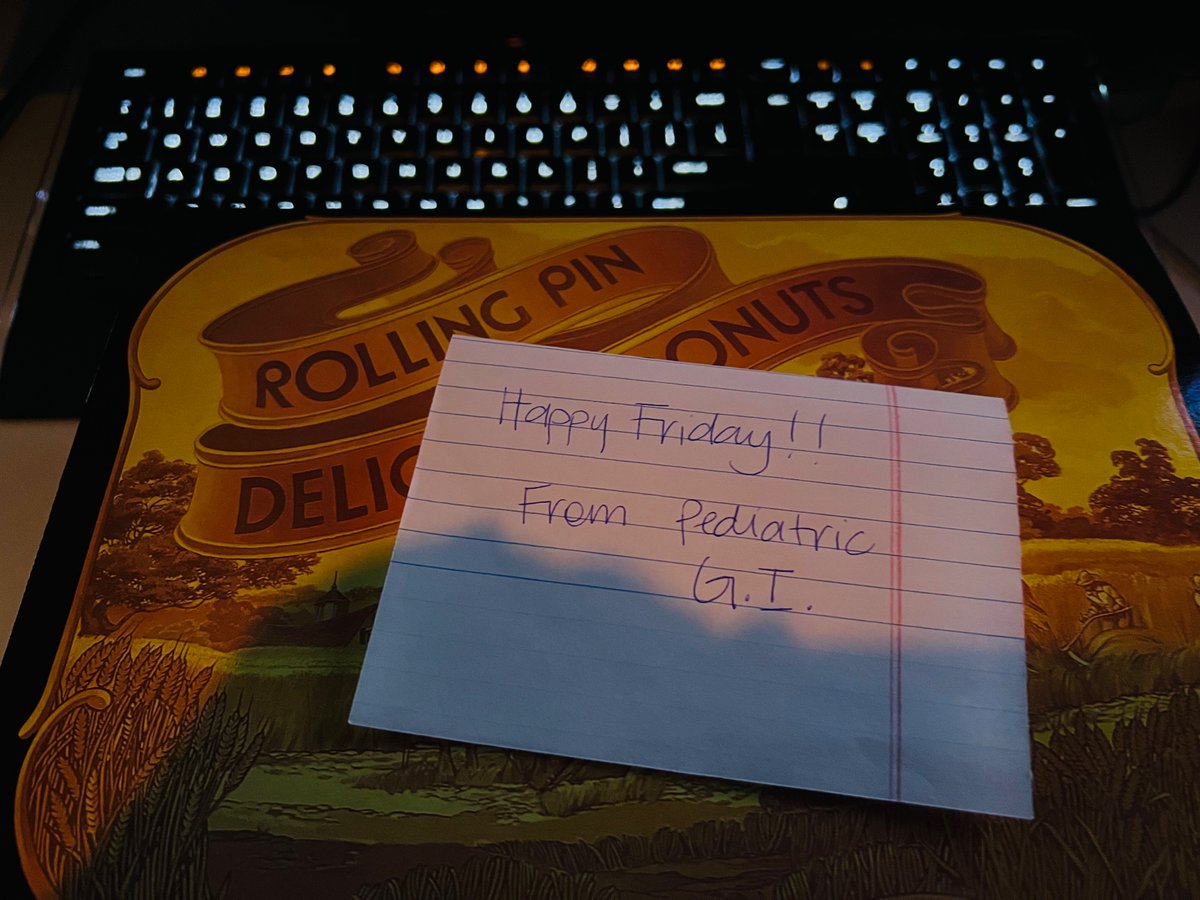 ROLLING PIN
ONUTS
DELIC
Happy Friday!!
From Pediatric
G.I.